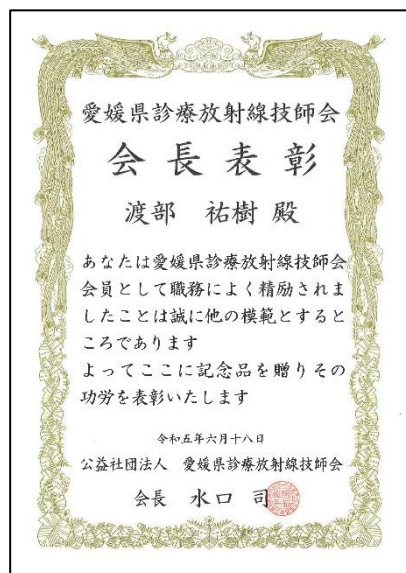 愛媛県診療放射線技師会
会長表彰
渡部　祐樹 殿
あなたは愛媛県診療放射線技師会
会員として職務によく精励されま
したことは誠に他の模範とすると
ころであります
よってここに記念品を贈りその
功労を表彰いたします
令和五年六月十八日
公益社団法人　愛媛県診療放射線技師会
会長　水口　司